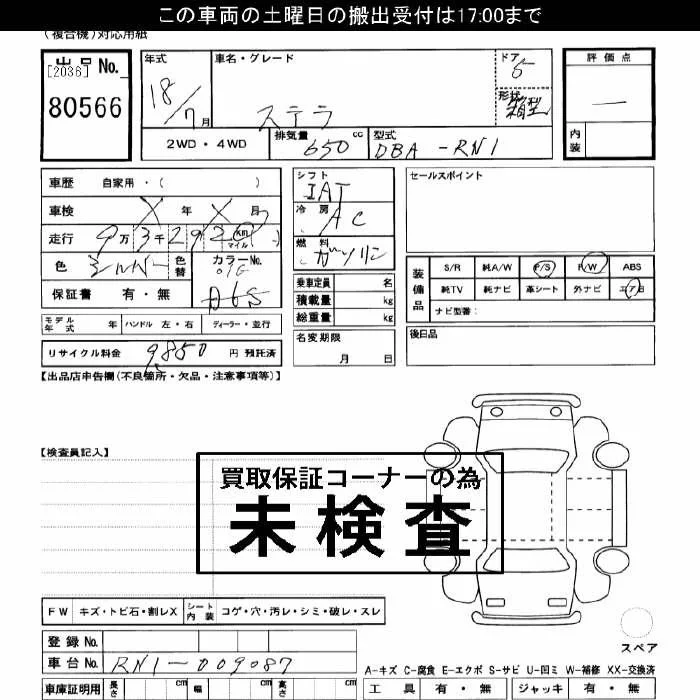 この車両の土曜日の搬出受付は17:00まで
(複合機)対応用紙
出品 No.
[2036]
80566
年式
18/7月
車名・グレード
ステラ
ドア
5
形状
箱型
評価点
一
内装
2WD・4WD
排気量 650 cc
型式 DBA-RN1
車歴 自家用・( )
車検 X 年 X 月
走行 9万3千292 km マイル
色 シルバー
色替
カラーNo.
D6S
保証書 有・無
シフト IAT
冷房 AC
燃料 ガソリン
乗車定員 名
積載量 kg
総重量 kg
セールスポイント
装備品
S/R 純A/W P/S P/W ABS
純TV 純ナビ 革シート 外ナビ エアB
ナビ型番:
モデル年式 年 ハンドル 左・右 ディーラー・並行
リサイクル料金 9,850 円 預託済
名変期限
月 日
後日品
【出品店申告欄(不良箇所・欠品・注意事項等)】
【検査員記入】
買取保証コーナーの為
未検査
FW キズ・トビ石・割レX シート内装 コゲ・穴・汚レ・シミ・破レ・スレ
スペア
登録 No.
車台 No. RN1-009087
A-キズ C-腐食 E-エクボ S-サビ U-凹ミ W-補修 XX-交換済
車庫証明用 長さ cm 幅 cm 高さ cm
工具 有・無 ジャッキ 有・無